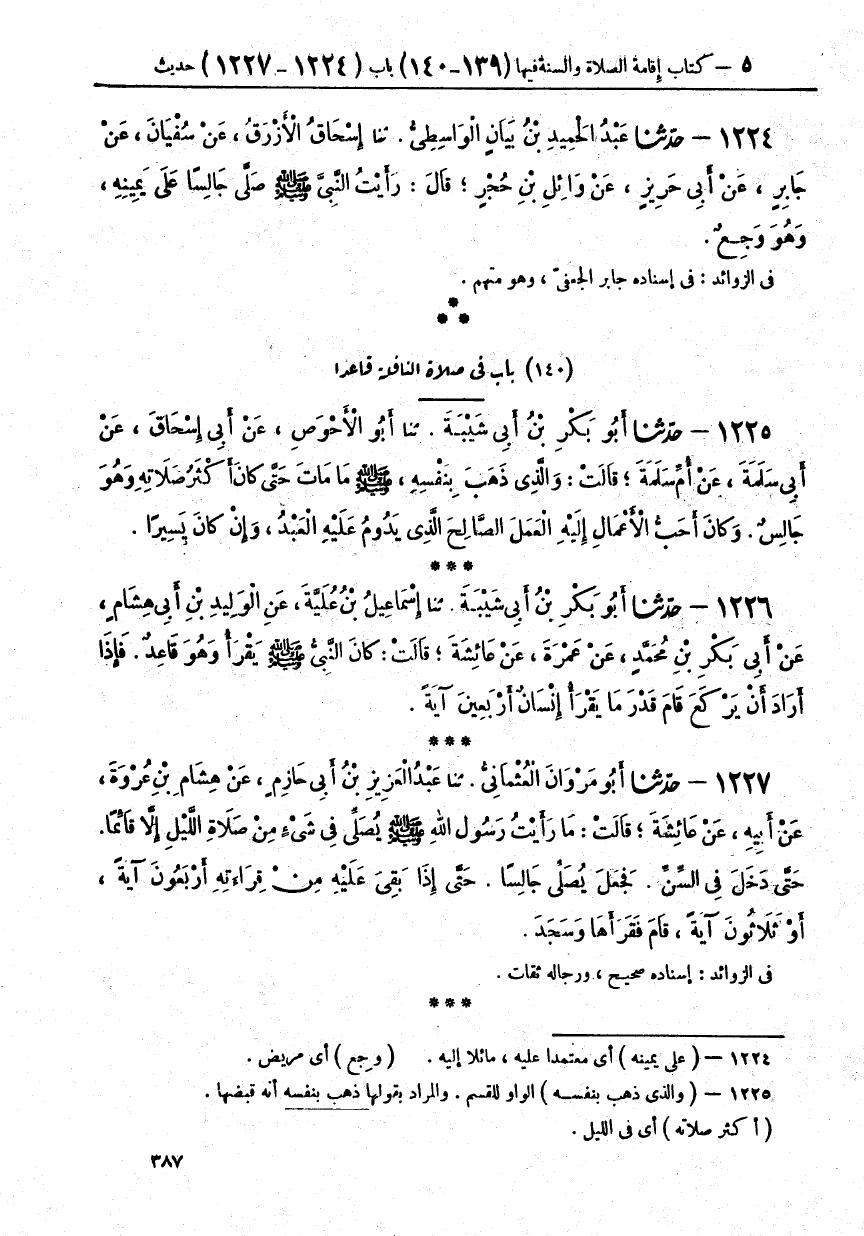 ٥ – كتاب إقامة الصلاة والسنة فيها (١٣٩-١٤٠) باب (١٢٢٤-١٢٢٧) حديث
١٢٢٤ – حدّثنا عَبْدُ الْحَمِيدِ بْنُ بَيَانٍ الْوَاسِطِيُّ . ثنا إِسْحَاقُ الْأَزْرَقُ ، عَنْ سُفْيَانَ ، عَنْ
جَابِرٍ ، عَنْ أَبِى حَرِيزٍ ، عَنْ وَائِلِ بْنِ حُجْرٍ ؛ قَالَ : رَأَيْتُ النَّبِىَّ ﷺ صَلَّى جَالِسًا عَلَى يَمِينِهِ ،
وَهُوَ وَجِعٌ .
فى الزوائد : فى إسناده جابر الجعفىّ ، وهو متهم .
***
(١٤٠) باب فى صلاة النافلة قاعدا
١٢٢٥ – حدّثنا أَبُو بَكْرِ بْنُ أَبِى شَيْبَةَ . ثنا أَبُو الْأَحْوَصِ ، عَنْ أَبِى إِسْحَاقَ ، عَنْ
أَبِى سَلَمَةَ ، عَنْ أُمِّ سَلَمَةَ ؛ قَالَتْ : وَالَّذِى ذَهَبَ بِنَفْسِهِ ، ﷺ مَا مَاتَ حَتَّى كَانَ أَكْثَرُ صَلَاتِهِ وَهُوَ
جَالِسٌ . وَكَانَ أَحَبُّ الْأَعْمَالِ إِلَيْهِ الْعَمَلَ الصَّالِحَ الَّذِى يَدُومُ عَلَيْهِ الْعَبْدُ ، وَإِنْ كَانَ يَسِيرًا .
***
١٢٢٦ – حدّثنا أَبُو بَكْرِ بْنُ أَبِى شَيْبَةَ . ثنا إِسْمَاعِيلُ بْنُ عُلَيَّةَ ، عَنِ الْوَلِيدِ بْنِ أَبِى هِشَامٍ ،
عَنْ أَبِى بَكْرِ بْنِ مُحَمَّدٍ ، عَنْ عَمْرَةَ ، عَنْ عَائِشَةَ ؛ قَالَتْ : كَانَ النَّبِىُّ ﷺ يَقْرَأُ وَهُوَ قَاعِدٌ . فَإِذَا
أَرَادَ أَنْ يَرْكَعَ قَامَ قَدْرَ مَا يَقْرَأُ إِنْسَانٌ أَرْبَعِينَ آيَةً .
***
١٢٢٧ – حدّثنا أَبُو مَرْوَانَ الْعُثْمَانِىُّ . ثنا عَبْدُ الْعَزِيزِ بْنُ أَبِى حَازِمٍ ، عَنْ هِشَامِ بْنِ عُرْوَةَ ،
عَنْ أَبِيهِ ، عَنْ عَائِشَةَ ؛ قَالَتْ : مَا رَأَيْتُ رَسُولَ اللهِ ﷺ يُصَلِّى فِى شَىْءٍ مِنْ صَلَاةِ اللَّيْلِ إِلَّا قَائِمًا .
حَتَّى دَخَلَ فِى السِّنِّ . فَجَعَلَ يُصَلِّى جَالِسًا . حَتَّى إِذَا بَقِىَ عَلَيْهِ مِنْ قِرَاءَتِهِ أَرْبَعُونَ آيَةً ،
أَوْ ثَلَاثُونَ آيَةً ، قَامَ فَقَرَأَهَا وَسَجَدَ .
فى الزوائد : إسناده صحيح ، ورجاله ثقات .
***
١٢٢٤ – ( على يمينه ) أى معتمدا عليه ، مائلا إليه . ( وجع ) أى مريض .
١٢٢٥ – ( والذى ذهب بنفسه ) الواو للقسم . والمراد بقولها ذهب بنفسه أنه قبضها .
( أكثر صلاته ) أى فى الليل .
٣٨٧